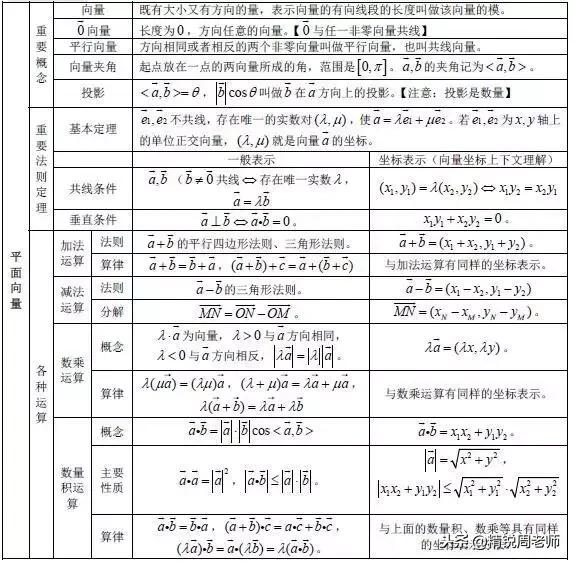 平面向量
重要概念
向量 既有大小又有方向的量，表示向量的有向线段的长度叫做该向量的模。
0⃗向量 长度为0，方向任意的向量。【0⃗与任一非零向量共线】
平行向量 方向相同或者相反的两个非零向量叫做平行向量，也叫共线向量。
向量夹角 起点放在一点的两向量所成的角，范围是[0,π]。a⃗,b⃗的夹角记为<a⃗,b⃗>。
投影 <a⃗,b⃗>=θ，|b⃗|cosθ叫做b⃗在a⃗方向上的投影。【注意：投影是数量】
重要法则定理
基本定理 e⃗₁,e⃗₂不共线，存在唯一的实数对(λ,μ)，使a⃗=λe⃗₁+μe⃗₂。若e⃗₁,e⃗₂为x,y轴上
的单位正交向量，(λ,μ)就是向量a⃗的坐标。
一般表示 坐标表示（向量坐标上下文理解）
共线条件 a⃗,b⃗（b⃗≠0⃗共线⇔存在唯一实数λ， (x₁,y₁)=λ(x₂,y₂)⇔x₁y₂=x₂y₁
a⃗=λb⃗
垂直条件 a⃗⊥b⃗⇔a⃗•b⃗=0。 x₁y₁+x₂y₂=0。
各种运算
加法运算
法则 a⃗+b⃗的平行四边形法则、三角形法则。 a⃗+b⃗=(x₁+x₂,y₁+y₂)。
算律 a⃗+b⃗=b⃗+a⃗，(a⃗+b⃗)+c⃗=a⃗+(b⃗+c⃗) 与加法运算有同样的坐标表示。
减法运算
法则 a⃗-b⃗的三角形法则。 a⃗-b⃗=(x₁-x₂,y₁-y₂)
分解 MN⃗=ON⃗-OM⃗。 MN⃗=(x_N-x_M,y_N-y_M)。
数乘运算
概念 λ·a⃗为向量，λ>0与a⃗方向相同， λa⃗=(λx,λy)。
λ<0与a⃗方向相反，|λa⃗|=|λ||a⃗|。
算律 λ(μa⃗)=(λμ)a⃗，(λ+μ)a⃗=λa⃗+μa⃗， 与数乘运算有同样的坐标表示。
λ(a⃗+b⃗)=λa⃗+λb⃗
数量积运算
概念 a⃗•b⃗=|a⃗|·|b⃗|cos<a⃗,b⃗> a⃗•b⃗=x₁x₂+y₁y₂。
主要性质 a⃗•a⃗=|a⃗|²，|a⃗•b⃗|≤|a⃗|·|b⃗|。 |a⃗|=√(x²+y²)，
|x₁x₂+y₁y₂|≤√(x₁²+y₁²)·√(x₂²+y₂²)
算律 a⃗•b⃗=b⃗•a⃗，(a⃗+b⃗)•c⃗=a⃗•c⃗+b⃗•c⃗， 与上面的数量积、数乘等具有同样
(λa⃗)•b⃗=a⃗•(λb⃗)=λ(a⃗•b⃗)。 的坐标
头条@精锐周老师